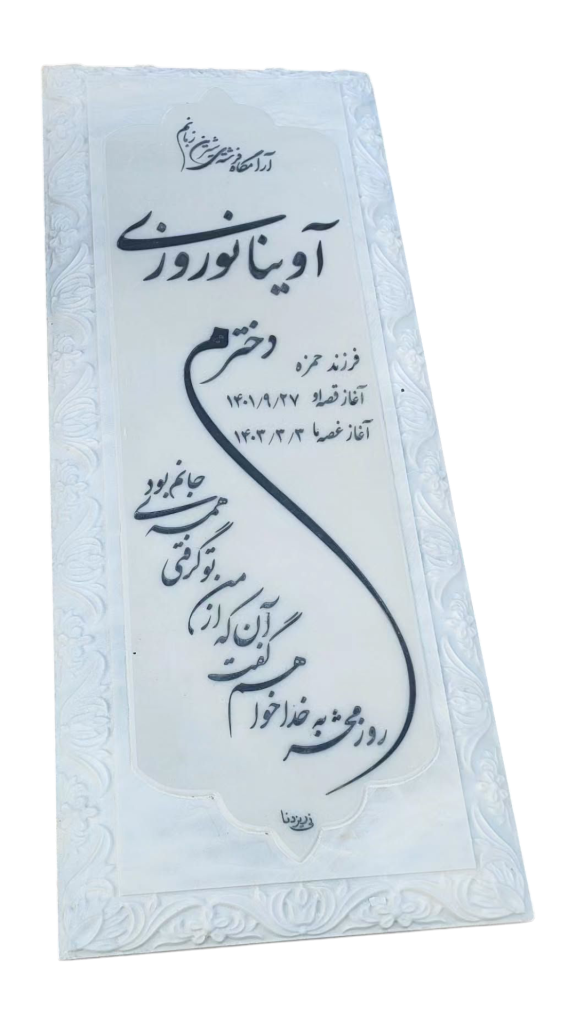 آرامگاه فرشته‌ی شیرین زبانم
آوینا نوروزی
دخترم
فرزند حمزه
آغاز قصه او ۱۴۰۱/۹/۲۷
آغاز غصه ما ۱۴۰۳/۳/۳
روز محشر به خدا خواهم گفت
آن که از من تو گرفتی
همه‌ی جانم بود